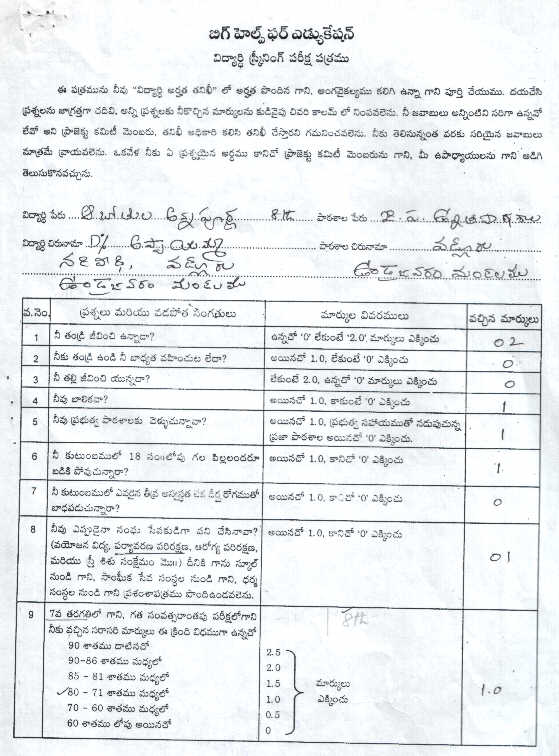 బిగ్ హెల్ప్ ఫర్ ఎడ్యుకేషన్
విద్యార్ధి స్క్రీనింగ్ పరీక్ష పత్రము
ఈ పత్రమును నీవు "విద్యార్ధి అర్హత తనిఖీ" లో అర్హత పొందిన గాని, అంగవైకల్యము కలిగి ఉన్నా గాని పూర్తి చేయుము. దయచేసి
ప్రశ్నలను జాగ్రత్తగా చదివి, అన్ని ప్రశ్నలకు నీకొచ్చిన మార్కులను కుడివైపు చివరి కాలమ్ లో నింపవలెను. నీ జవాబులు అన్నింటిని సరిగా ఉన్నవో
లేవో అని ప్రాజెక్టు కమిటీ మెంబరు, తనిఖీ అధికారి కలిసి తనిఖీ చేస్తారని గమనించవలెను. నీకు తెలిసున్నంత వరకు సరియైన జవాబులు
మాత్రమే వ్రాయవలెను. ఒకవేళ నీకు ఏ ప్రశ్నయైన అర్ధము కానిచో ప్రాజెక్టు కమిటీ మెంబరును గాని, మీ ఉపాధ్యాయులను గాని అడిగి
తెలుసుకొనవచ్చును.
విద్యార్ధి పేరు అన్నపూర్ణ 8th పాఠశాల పేరు జి. ప. ఉన్నత పాఠశాల
విద్యార్ధి చిరునామా D/o పాఠశాల చిరునామా వడ్లూరు
వడ్లూరు ఉండ్రాజవరం మండలము
ఉండ్రాజవరం మండలము
వ.నెం. ప్రశ్నలు మరియు వడపోత సంగతులు మార్కుల వివరములు వచ్చిన మార్కులు
1 నీ తండ్రి జీవించి ఉన్నాడా? ఉన్నచో '0' లేకుంటే '2.0', మార్కులు ఎక్కించు 02
2 నీకు తండ్రి ఉండి నీ బాధ్యత వహించుట లేదా? అయినచో 1.0, లేకుంటే '0' ఎక్కించు 0
3 నీ తల్లి జీవించి యున్నదా? లేకుంటే 2.0, ఉన్నచో '0' మార్కులు ఎక్కించు 0
4 నీవు బాలికవా? అయినచో 1.0, కాకుంటే '0' ఎక్కించు 1
5 నీవు ప్రభుత్వ పాఠశాలకు వెళ్ళుచున్నావా? అయినచో 1.0, ప్రభుత్వ సహాయముతో నడుపుచున్న
ప్రజా పాఠశాల అయినచో '0' ఎక్కించు. 1
6 నీ కుటుంబములో 18 సం॥లోపు గల పిల్లలందరూ
బడికి పోవుచున్నారా? అయినచో 1.0, కానిచో '0' ఎక్కించు 1
7 నీ కుటుంబములో ఎవరైన తీవ్ర అస్వస్థత లేక దీర్ఘ రోగముతో
బాధపడుచున్నారా? అయినచో 1.0, కానిచో '0' ఎక్కించు 0
8 నీవు ఎప్పుడైనా సంఘ సేవకుడిగా పని చేసినావా? అయినచో 1.0, కానిచో '0' ఎక్కించు 01
(వయోజన విద్య, పర్యావరణ పరిరక్షణ, ఆరోగ్య పరిరక్షణ,
మరియు స్త్రీ శిశు సంక్షేమం మొ॥) దీనికి గాను స్కూల్
నుండి గాని, సాంఘీక సేవ సంస్థల నుండి గాని, ధర్మ
సంస్థల నుండి గాని ప్రశంశాపత్రము పొందిఉండవలెను.
9 7వ తరగతిలో గాని, గత సంవత్సరాంతపు పరీక్షలోగాని 8th
నీకు వచ్చిన సరాసరి మార్కులు ఈ క్రింది విధముగా ఉన్నచో
90 శాతము దాటినచో 2.5
90-86 శాతము మధ్యలో 2.0
85 - 81 శాతము మధ్యలో 1.5 మార్కులు
80 - 71 శాతము మధ్యలో 1.0 ఎక్కించు 1.0
70 - 60 శాతము మధ్యలో 0.5
60 శాతము లోపు అయినచో 0